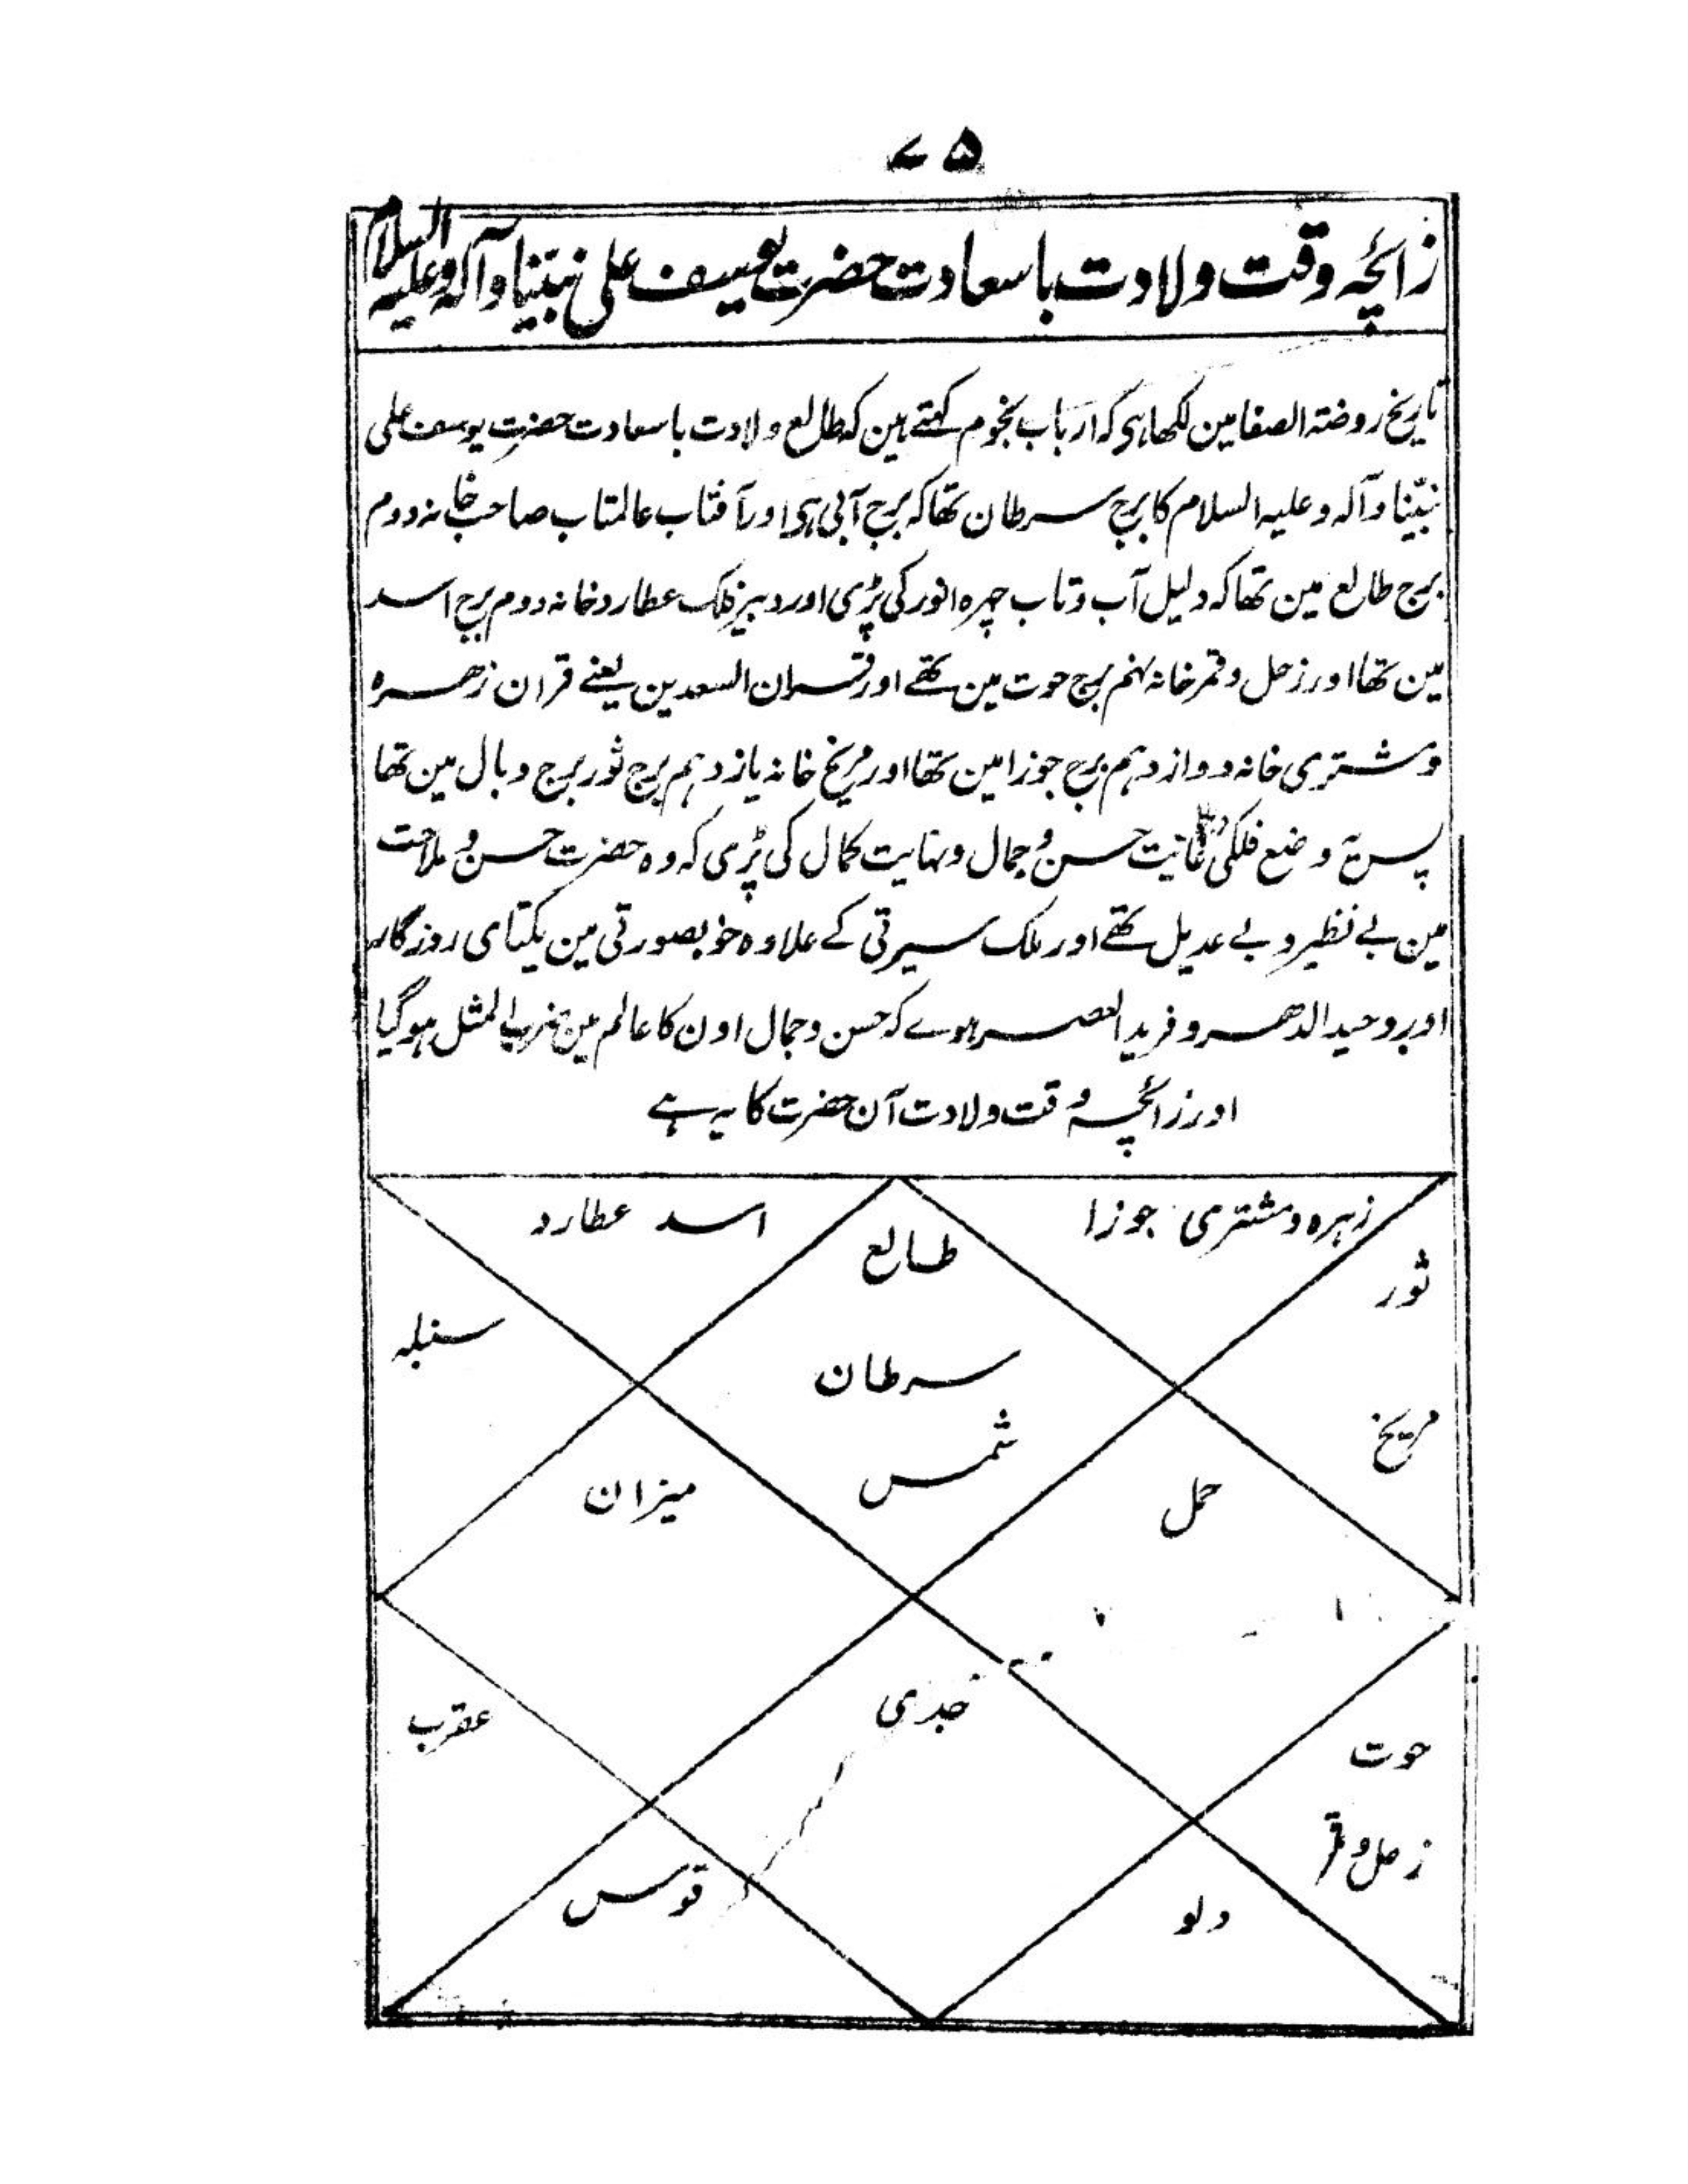 ۷۵
زائچہ وقت ولادت باسعادت حضرت یوسف علی نبینا وآلہ وعلیہ السلام
تاریخ روضتہ الصفا مین لکھا ہی کہ ارباب نجوم کہتے ہین کہ طالع ولادت باسعادت حضرت یوسف علی
نبینا وآلہ وعلیہ السلام کا برج سرطان تھا کہ برج آبی ہی اور آفتاب عالمتاب صاحب خانہ دوم
برج طالع مین تھا کہ دلیل آب وتاب چہرہ انور کی پڑی اور دبیر فلک عطارد خانہ دوم برج اسد
مین تھا اور زحل وقمر خانہ نہم برج حوت مین تھے اور قران السعدین یعنے قران زھرہ
ومشتری خانہ دوازدہم برج جوزا مین تھا اور مریخ خانہ یازدہم برج ثور برج وبال مین تھا
پس یہ وضع فلکی دلیل غایت حسن وجمال ونہایت کمال کی پڑی کہ وہ حضرت حسن وملاحت
مین بے نظیر و بے عدیل تھے اور ملک سیرتی کے علاوہ خوبصورتی مین یکتای روزگار
اور وحید الدھر و فرید العصر ہوے کہ حسن وجمال اون کا عالم مین ضرب المثل ہوگیا
اور زائچہ وقت ولادت آن حضرت کا یہ ہے
زہرہ ومشتری جوزا
اسد عطارد
طالع
ثور
سنبلہ
سرطان
مریخ
شمس
حمل
میزان
جدی
عقرب
حوت
زحل وقمر
قوس
دلو